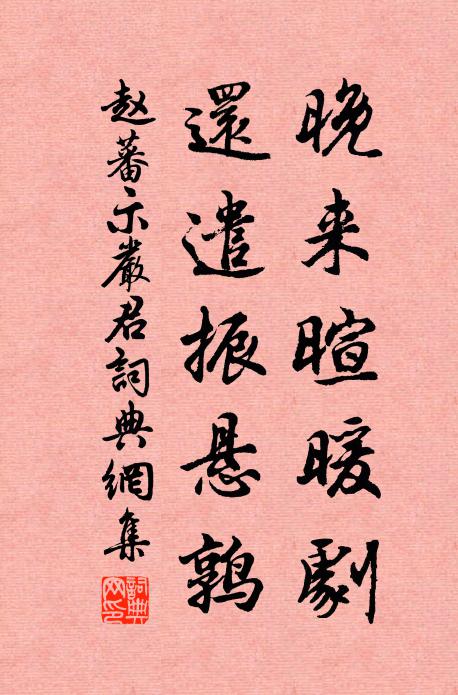 晚来暄暖劇
還遣振悬鹑
赵蕃示嚴君詞典網集
詞典网印